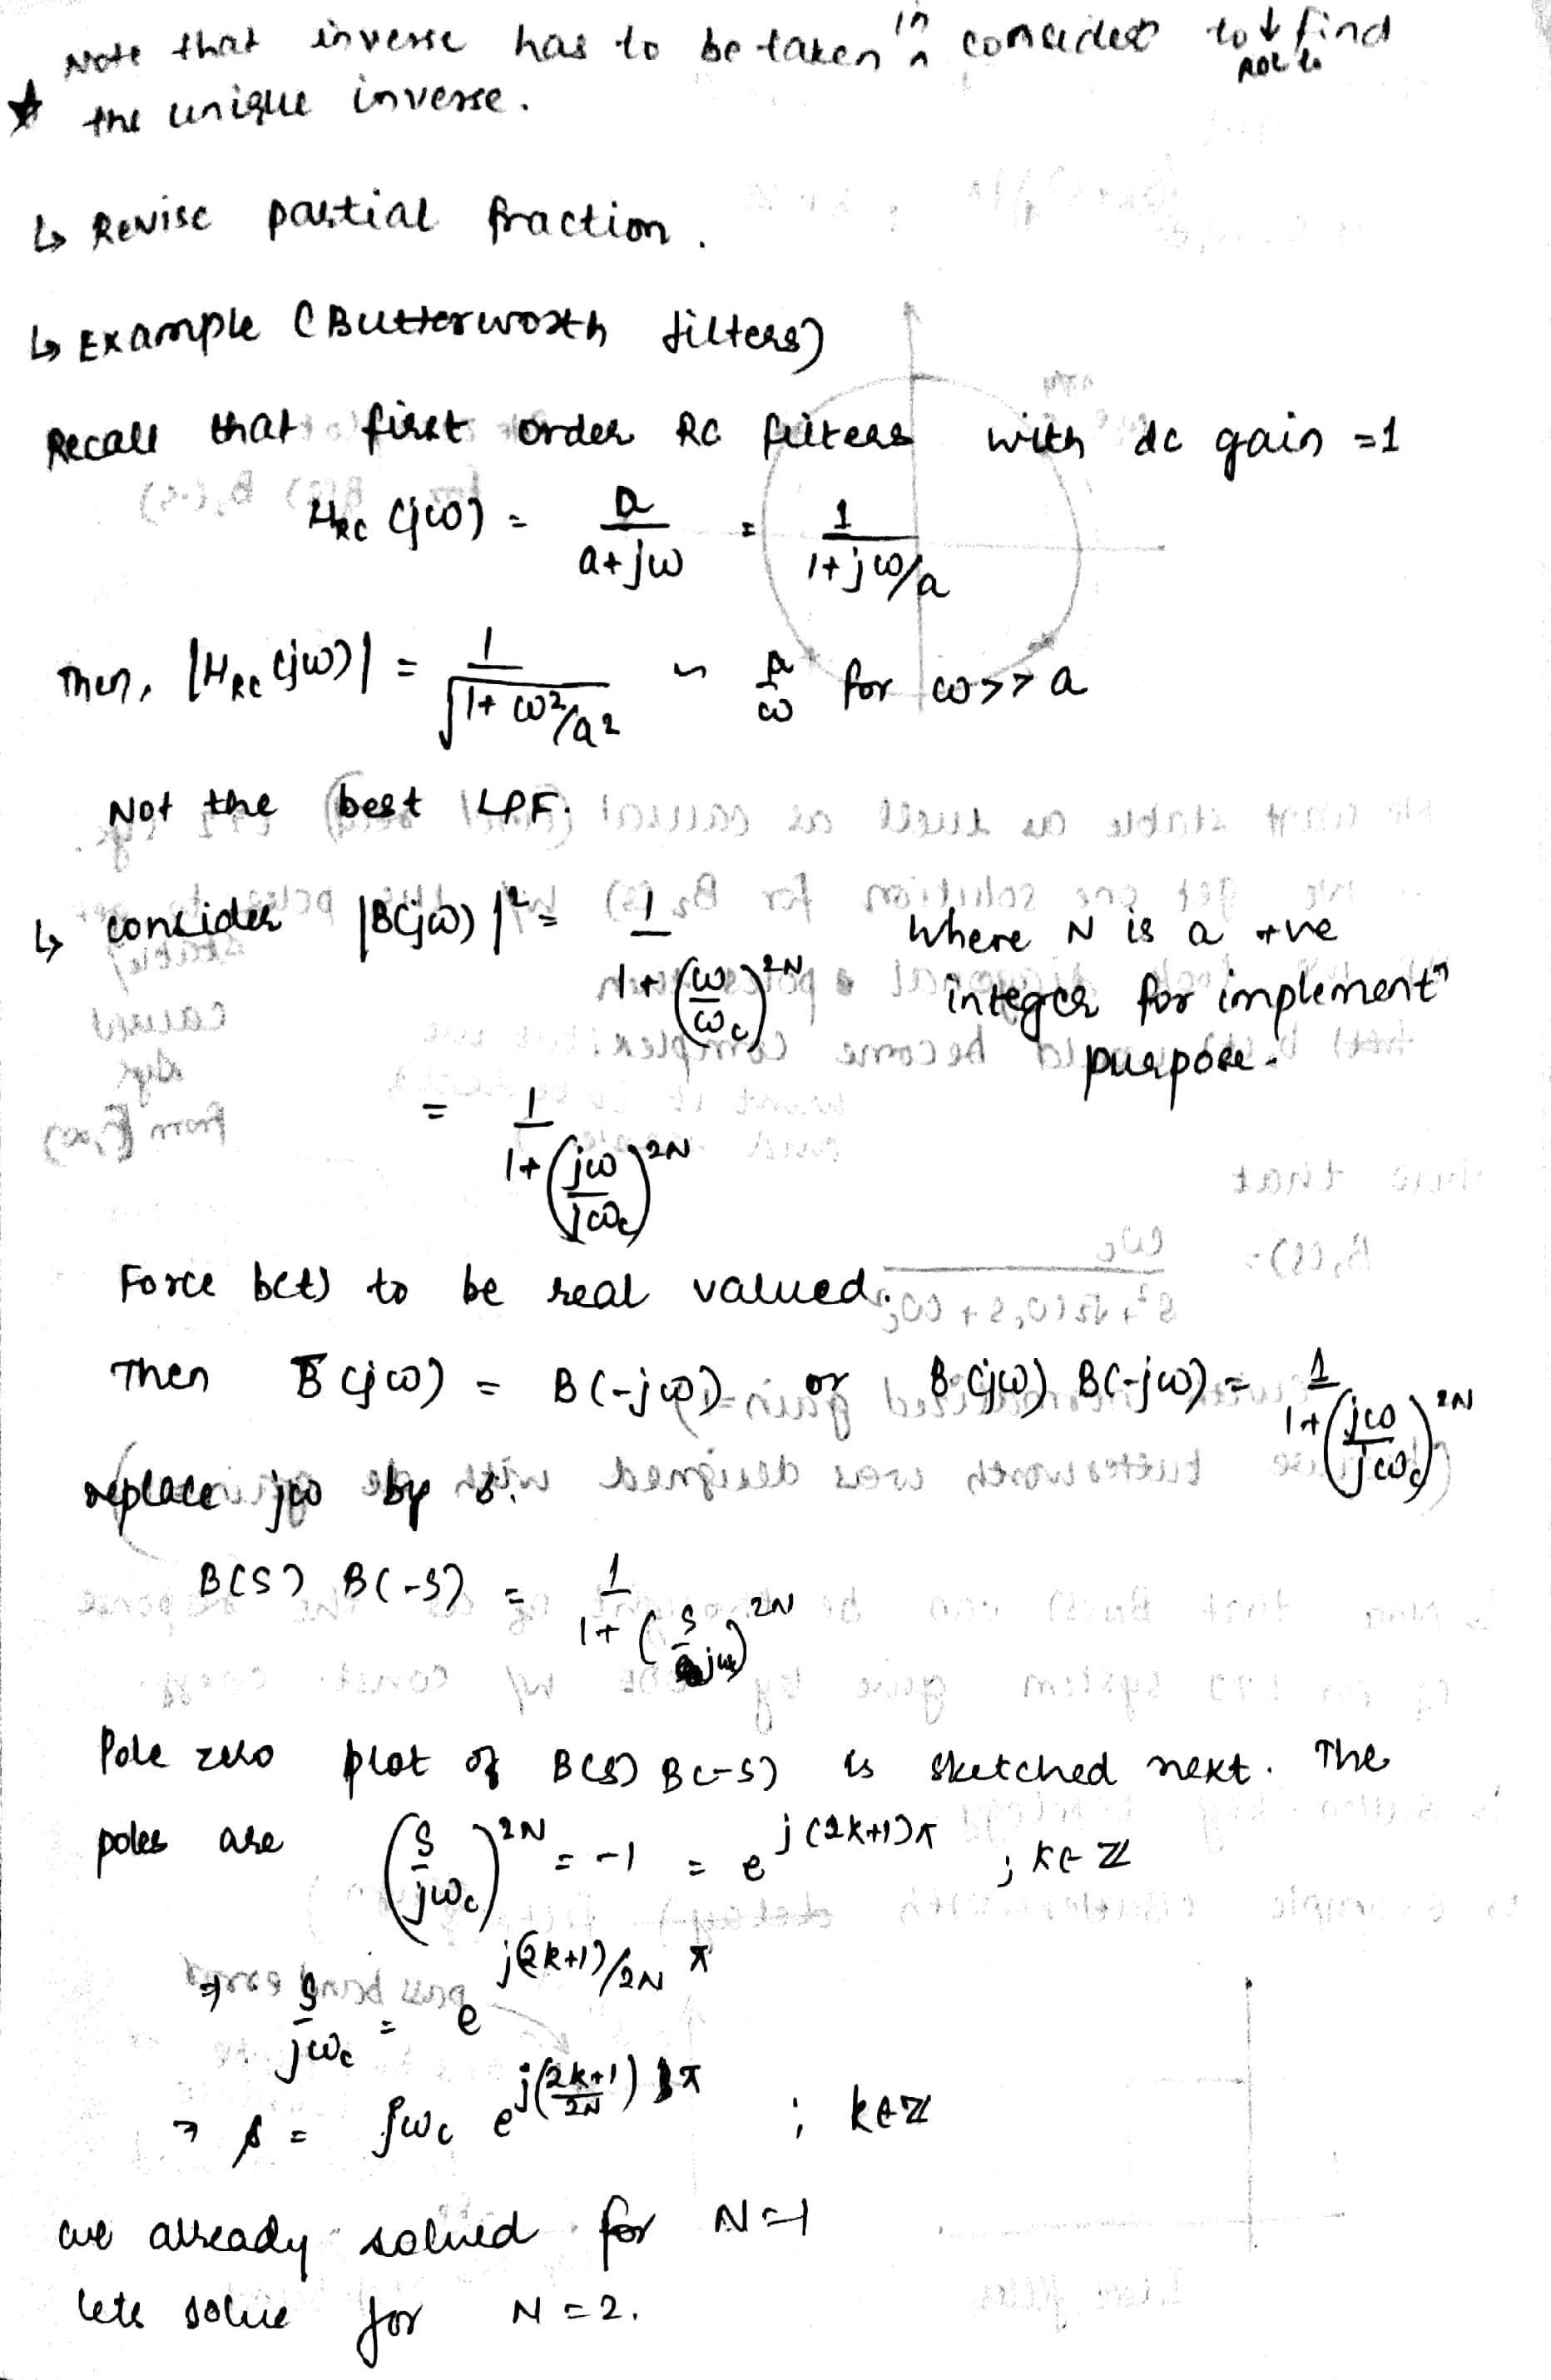 Note that inverse has to be taken in consider to ↓ find
ROC to
★ the unique inverse.
↳ Revise partial fraction.
↳ Example (Butterworth filters)
Recall that first order RC filters with dc gain =1
H_RC (jω) = a/(a+jω) = 1/(1+jω/a)
Then, |H_RC (jω)| = 1/√(1+ω²/a²) ~ a/ω for ω>>a
Not the best LPF.
↳ consider |B(jω)|² = 1/(1+(ω/ω_c)^2N) where N is a +ve
integer for implementⁿ
purpose.
= 1/(1+(jω/jω_c)^2N)
Force b(t) to be real valued.
Then B̄(jω) = B(-jω) or B(jω) B(-jω) = 1/(1+(jω/jω_c)^2N)
replace jω by s.
B(s) B(-s) = 1/(1+(s/jω_c)^2N)
Pole zero plot of B(s) B(-s) is sketched next. The
poles are (s/jω_c)^2N = -1 = e^j(2k+1)π ; k∈ℤ
⇒ s/jω_c = e^j(2k+1)/2N π
⇒ s = jω_c e^j((2k+1)/2N)π ; k∈ℤ
we already solved for N=1
lets solve for N=2.